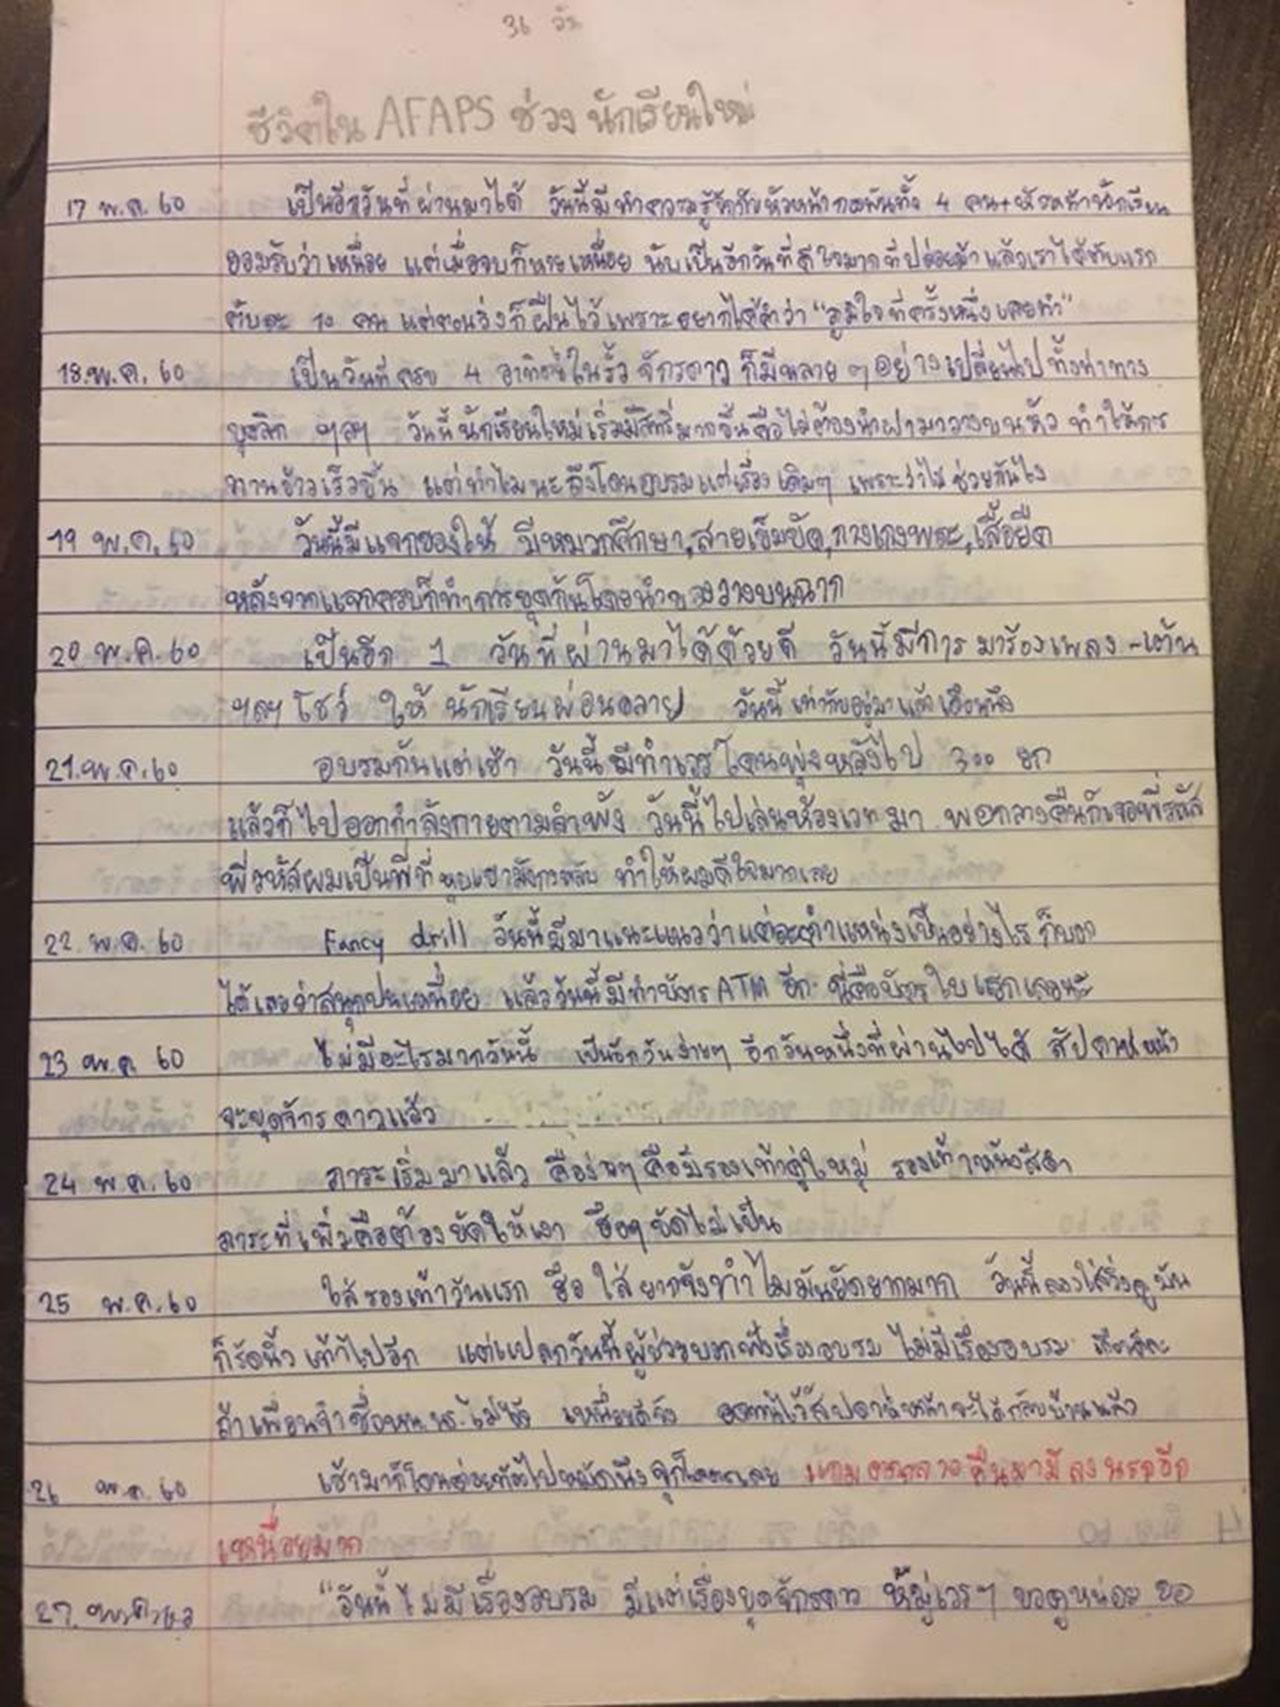 36 วัน
ชีวิตใน AFAPS ช่วง นักเรียนใหม่
17 พ.ค. 60 เป็นอีกวันที่ผ่านมาได้ วันนี้มีทำความรู้จักกับหัวหน้ากองพันทั้ง 4 คน+หัวหน้านักเรียน
ยอมรับว่าเหนื่อย แต่เมื่อจบก็หายเหนื่อย นับเป็นอีกวันที่ดีใจมากที่ปล่อยม้าแล้วเราได้ตับแรก
ตับละ 10 คน แต่ตอนวิ่งก็ฝืนไว้เพราะอยากได้คำว่า "ภูมิใจที่ครั้งหนึ่งเคยทำ"
18.พ.ค. 60 เป็นวันที่ครบ 4 อาทิตย์ในรั้ว จักรดาว ก็มีหลาย ๆ อย่างเปลี่ยนไป ทั้งท่าทาง
บุคลิก ฯลฯ วันนี้นักเรียนใหม่เริ่มมีสิทธิ์มากขึ้นคือไม่ต้องนำฝามาวางบนหัว ทำให้การ
ทานข้าวเร็วขึ้น แต่ทำไมนะถึงโดนอบรมแต่เรื่องเดิมๆ เพราะว่าไม่ช่วยกันไง
19 พ.ค. 60 วันนี้มีแจกของให้ มีหมวกศึกษา,สายเข็มขัด,กางเกงพละ,เสื้อยืด
หลังจากแจกครบก็ทำการชุดกันโดยนำของวางบนฉาก
20 พ.ค. 60 เป็นอีก 1 วันที่ผ่านมาได้ด้วยดี วันนี้มีการมาร้องเพลง -เต้น
ฯลฯ โชว์ ให้ นักเรียนผ่อนคลาย วันนี้เท่ากับอยู่มาแล้วเดือนนึง
21.พ.ค.60 อบรมกันแต่เช้า วันนี้มีทำเวร โดนพุ่งหลังไป 300 ยก
แล้วก็ไปออกกำลังกายตามลำพัง วันนี้ไปเล่นห้องเวทมา พอกลางคืนก็เจอพี่รหัส
พี่รหัสผมเป็นพี่ที่ หุบเขามังกรหลับ ทำให้ผมดีใจมากเลย
22. พ.ค. 60 Fancy drill วันนี้มีมาแนะแนวว่าแต่ละตำแหน่งเป็นอย่างไร ก็บอก
ได้เลยว่าสนุกปนเหนื่อย แล้ววันนี้มีทำบัตร ATM อีก นี่คือบัตรใบแรกเลยนะ
23 พ.ค. 60 ไม่มีอะไรมากวันนี้ เป็นอีกวันง่ายๆ อีกวันหนึ่งที่ผ่านไปได้ สัปดาห์หน้า
จะชุดจักรดาวแล้ว
24 พ.ค. 60 ภาระเริ่มมาแล้ว คือง่ายๆ คือมีรองเท้าคู่ใหม่ รองเท้าหนังสีดำ
ภาระที่เพิ่มคือต้องขัดให้เงา ซึ่งๆ ขัดไม่เป็น
25 พ.ค. 60 ใส่รองเท้าวันแรก คือ ใส่ยากจังทำไมมันยัดยากมาก วันนี้ลองใส่วิ่งดู มัน
ก็ร้อนิ้วเท้าไปอีก แต่แปลกวันนี้ผู้ช่วยบอกฟังเรื่องอบรม ไม่มีเรื่องอบรม
ถ้าเพื่อนจำชื่อ ไม่ได้ อดทนไว้สัปดาห์หน้าจะได้กลับบ้านแล้ว
26 พ.ค. 60 เช้ามาก็โดนต่อยท้องไปหมัดนึง จุกโคตรเลย แถมตกกลางคืนมามีลงนรกอีก
เหนื่อยมาก
27. พ.ค. 60 "วันนี้ไม่มีเรื่องอบรม มีแต่เรื่องชุดจักรดาว ให้มู่เวรๆ ขอดูหน่อย ขอ